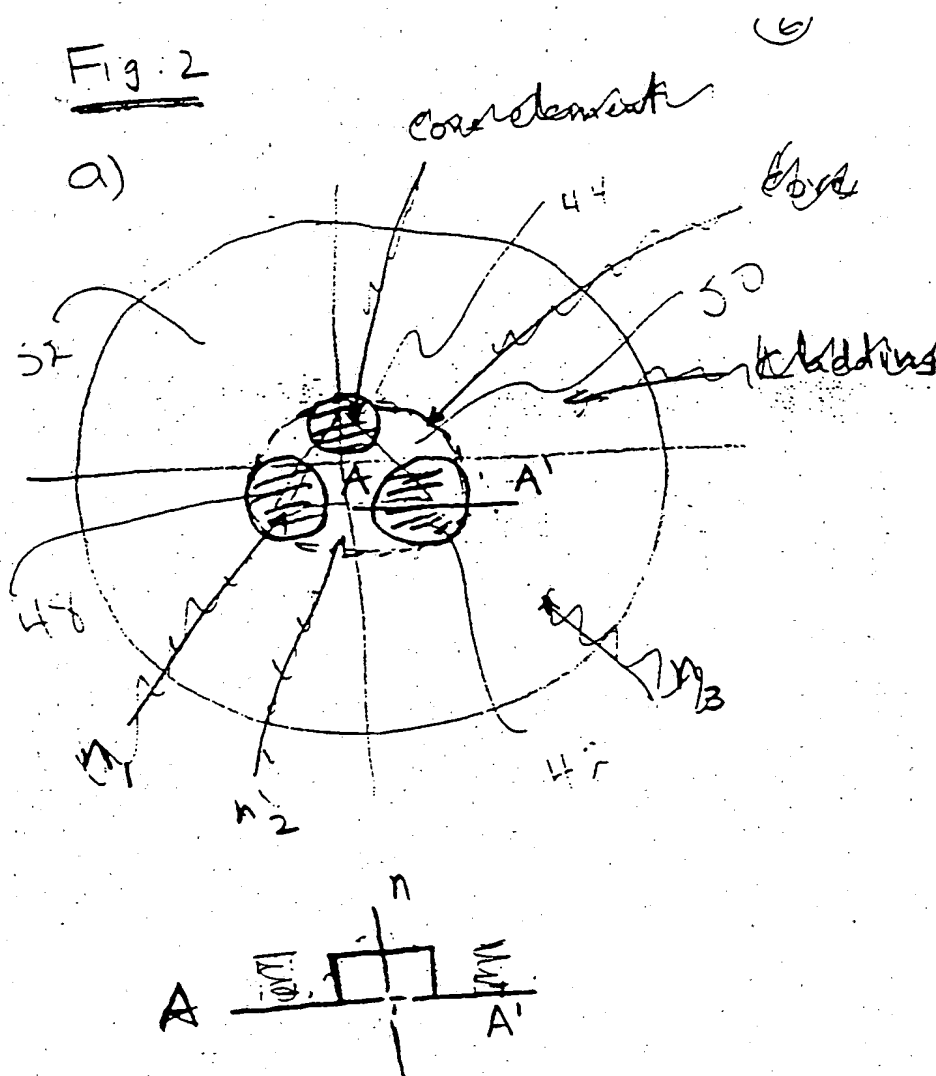 6
Fig. 2
a)
core element
44
core
50
cladding
A
A'
48
n1
n'2
n3
n
A
A'